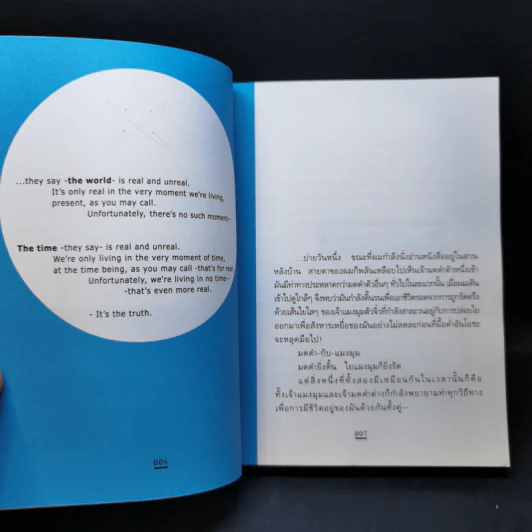 ...they say -the world- is real and unreal.
It's only real in the very moment we're living,
present, as you may call.
Unfortunately, there's no such moment-
The time -they say- is real and unreal.
We're only living in the very moment of time,
at the time being, as you may call -that's for real
Unfortunately, we're living in no time--
-that's even more real.
- It's the truth.
006
...บ่ายวันหนึ่ง ขณะที่ผมกำลังนั่งอ่านหนังสืออยู่ในสวน
หลังบ้าน สายตาของผมก็พลันเหลือบไปเห็นเจ้ามดดำตัวหนึ่งเข้า
มันมีท่าทางประหลาดกว่ามดดำตัวอื่นๆ ทั่วไปในละแวกนั้น เมื่อผมเดิน
เข้าไปดูใกล้ๆ จึงพบว่ามันกำลังดิ้นรนเพื่อเอาชีวิตรอดจากการถูกรัดตรึง
ด้วยเส้นใยใสๆ ของเจ้าแมงมุมตัวจิ๋วที่กำลังสาละวนอยู่กับการปล่อยใย
ออกมาเพื่อสังหารเหยื่อของมันอย่างไม่ลดละก่อนที่มื้อค่ำอันโอชะ
จะหลุดมือไป!
มดดำ-กับ-แมงมุม
มดดำยิ่งดิ้น ใยแมงมุมก็ยิ่งรัด
แต่สิ่งหนึ่งที่ทั้งสองมีเหมือนกันในเวลานั้นก็คือ
ทั้งเจ้าแมงมุมและเจ้ามดดำต่างก็กำลังพยายามทำทุกวิถีทาง
เพื่อการมีชีวิตอยู่ของมันด้วยกันทั้งคู่--
007